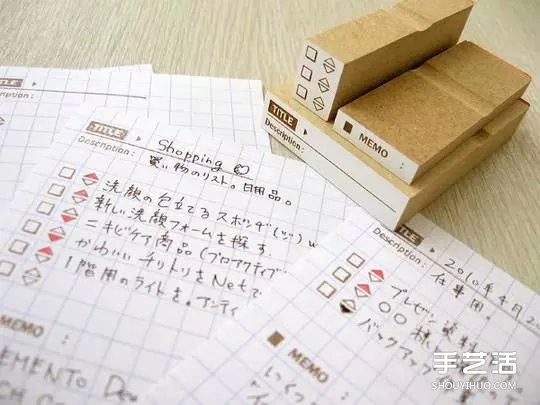 TITLE
Description:
MEMO
:
TITLE
Description:
TITLE
Shopping
Description:
買い物のリスト。日用品。
洗顔の泡立てるスポンジ
新しい洗顔フォームを探す.
ニキビケイ商品(プロアクティブ
かわいいチリトリをNetで
1階用のライトを。アンティ
MEMO
TITLE
2010年4月
Description:
仕事用
プレゼン
〇〇様
バックアップ
MEMO
:
手艺活
SHOUYIHUO.COM